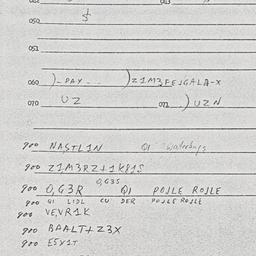 050
½
051
060 )-PAY-- )Z1M3FEJGALA-X
070 UZ 071 )UZN
900 NASTL1N QI Waterbugs
900 Z1M3RZ+1K81S
0,G3S
900 0,G3R QI POJLE ROJLE
900 QI LIDL CU DER POJLE ROJLE
900 VEVR1K
900 BAALT+Z3X
900 ESY1T